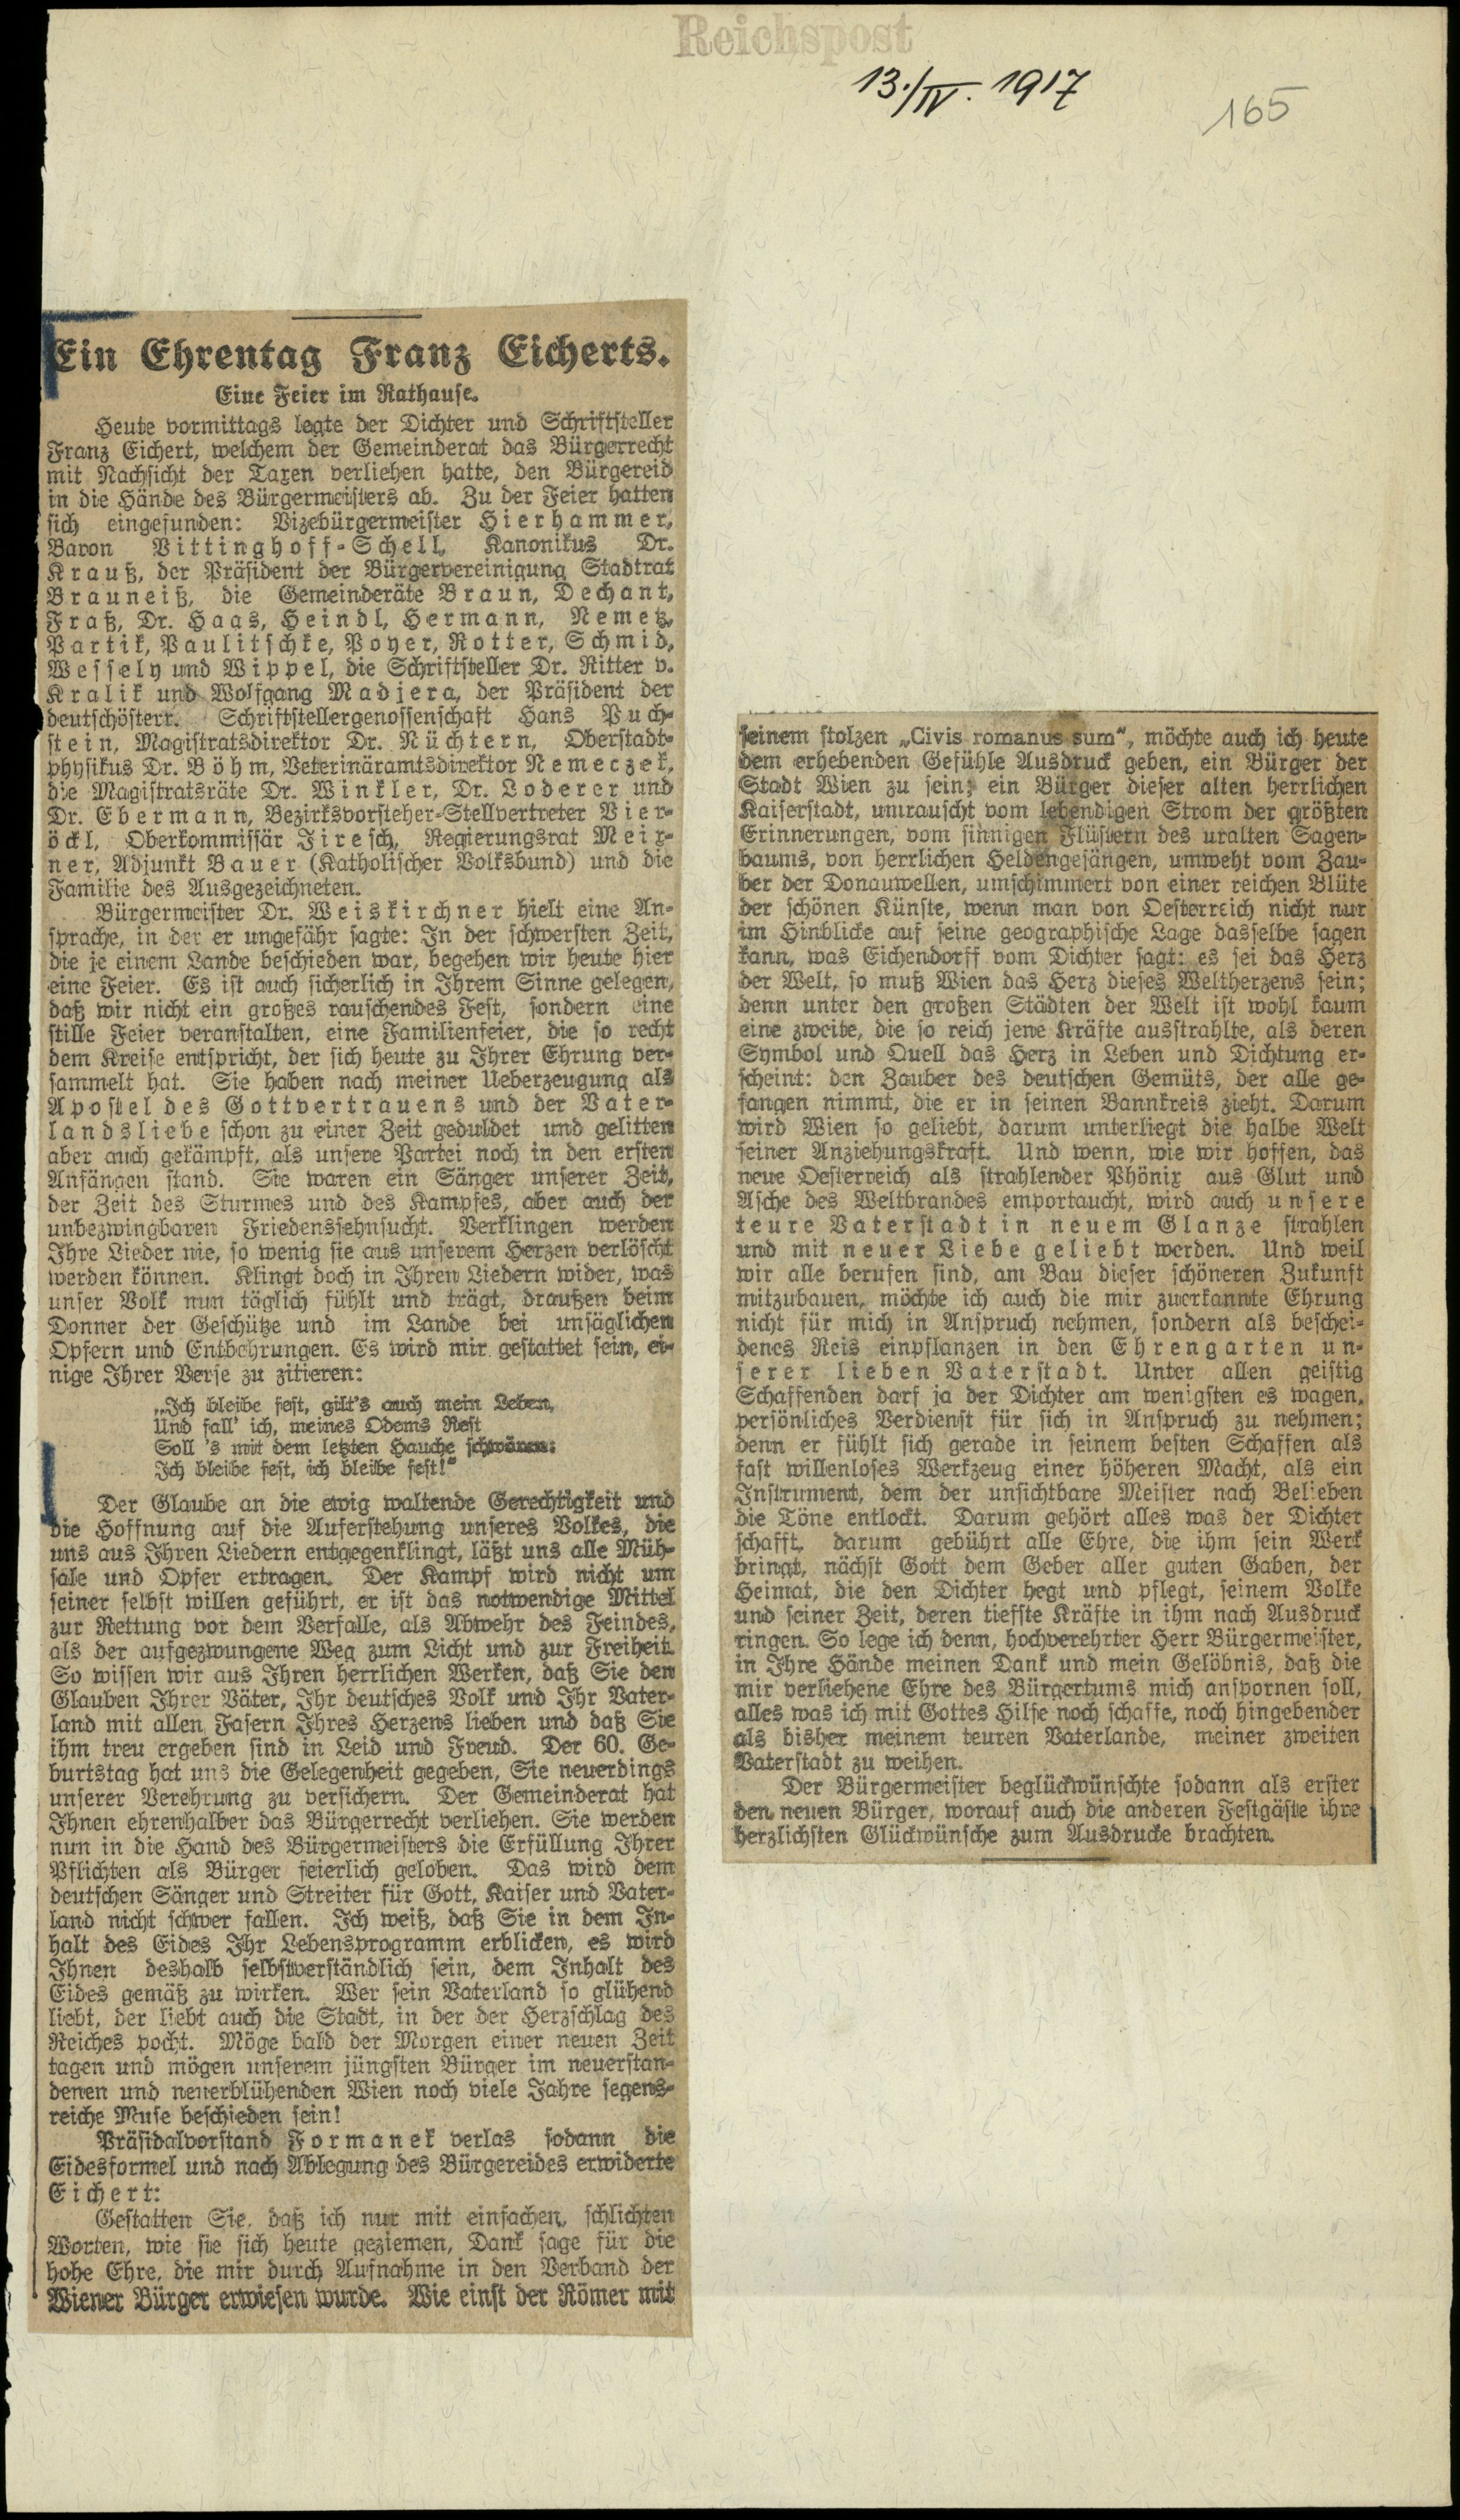 Reichspost
13./IV. 1917
165
Ein Ehrentag Franz Eicherts.
Eine Feier im Rathause.
Heute vormittags legte der Dichter und Schriftsteller
Franz Eichert, welchem der Gemeinderat das Bürgerrecht
mit Nachsicht der Taxen verliehen hatte, den Bürgereid
in die Hände des Bürgermeisters ab. Zu der Feier hatten
sich eingefunden: Vizebürgermeister Hierhammer,
Baron Vittinghoff-Schell, Kanonikus Dr.
Krauß, der Präsident der Bürgervereinigung Stadtrat
Brauneiß, die Gemeinderäte Braun, Dechant,
Fraß, Dr. Haas, Heindl, Hermann, Nemetz,
Partik, Paulitschke, Poyer, Rotter, Schmid,
Wessely und Wippel, die Schriftsteller Dr. Ritter v.
Kralik und Wolfgang Madjera, der Präsident der
deutschösterr. Schriftstellergenossenschaft Hans Puch-
stein, Magistratsdirektor Dr. Nüchtern, Oberstadt-
physikus Dr. Böhm, Veterinäramtsdirektor Nemeczek,
die Magistratsräte Dr. Winkler, Dr. Loderer und
Dr. Ebermann, Bezirksvorsteher-Stellvertreter Vier-
öckl, Oberkommissär Jiresch, Regierungsrat Meix-
ner, Adjunkt Bauer (Katholischer Volksbund) und die
Familie des Ausgezeichneten.
Bürgermeister Dr. Weiskirchner hielt eine An-
sprache, in der er ungefähr sagte: In der schwersten Zeit,
die je einem Lande beschieden war, begehen wir heute hier
eine Feier. Es ist auch sicherlich in Ihrem Sinne gelegen,
daß wir nicht ein großes rauschendes Fest, sondern eine
stille Feier veranstalten, eine Familienfeier, die so recht
dem Kreise entspricht, der sich heute zu Ihrer Ehrung ver-
sammelt hat. Sie haben nach meiner Ueberzeugung als
Apostel des Gottvertrauens und der Vater-
landsliebe schon zu einer Zeit geduldet und gelitten
aber auch gekämpft, als unsere Partei noch in den ersten
Anfängen stand. Sie waren ein Sänger unserer Zeit,
der Zeit des Sturmes und des Kampfes, aber auch der
unbezwingbaren Friedenssehnsucht. Verklingen werden
Ihre Lieder nie, so wenig sie aus unserem Herzen verlöscht
werden können. Klingt doch in Ihren Liedern wider, was
unser Volk nun täglich fühlt und trägt, draußen beim
Donner der Geschütze und im Lande bei unsäglichen
Opfern und Entbehrungen. Es wird mir gestattet sein, ei-
nige Ihrer Verse zu zitieren:
„Ich bleibe fest, gilt's auch mein Leben,
Und fall' ich, meines Odems Rest
Soll 's mit dem letzten Hauche schwören:
Ich bleibe fest, ich bleibe fest!"
Der Glaube an die ewig waltende Gerechtigkeit und
die Hoffnung auf die Auferstehung unseres Volkes, die
uns aus Ihren Liedern entgegenklingt, läßt uns alle Müh-
sale und Opfer ertragen. Der Kampf wird nicht um
seiner selbst willen geführt, er ist das notwendige Mittel
zur Rettung vor dem Verfalle, als Abwehr des Feindes,
als der aufgezwungene Weg zum Licht und zur Freiheit.
So wissen wir aus Ihren herrlichen Werken, daß Sie den
Glauben Ihrer Väter, Ihr deutsches Volk und Ihr Vater-
land mit allen Fasern Ihres Herzens lieben und daß Sie
ihm treu ergeben sind in Leid und Freud. Der 60. Ge-
burtstag hat uns die Gelegenheit gegeben, Sie neuerdings
unserer Verehrung zu versichern. Der Gemeinderat hat
Ihnen ehrenhalber das Bürgerrecht verliehen. Sie werden
nun in die Hand des Bürgermeisters die Erfüllung Ihrer
Pflichten als Bürger feierlich geloben. Das wird dem
deutschen Sänger und Streiter für Gott, Kaiser und Vater-
land nicht schwer fallen. Ich weiß, daß Sie in dem In-
halt des Eides Ihr Lebensprogramm erblicken, es wird
Ihnen deshalb selbstverständlich sein, dem Inhalt des
Eides gemäß zu wirken. Wer sein Vaterland so glühend
liebt, der liebt auch die Stadt, in der der Herzschlag des
Reiches pocht. Möge bald der Morgen einer neuen Zeit
tagen und mögen unserem jüngsten Bürger im neuerstan-
denen und neuerblühenden Wien noch viele Jahre segens-
reiche Muse beschieden sein!
Präsidalvorstand Formanek verlas sodann die
Eidesformel und nach Ablegung des Bürgereides erwiderte
Eichert:
Gestatten Sie, daß ich nur mit einfachen, schlichten
Worten, wie sie sich heute geziemen, Dank sage für die
hohe Ehre, die mir durch Aufnahme in den Verband der
Wiener Bürger erwiesen wurde. Wie einst der Römer mit
seinem stolzen „Civis romanus sum“, möchte auch ich heute
dem erhebenden Gefühle Ausdruck geben, ein Bürger der
Stadt Wien zu sein; ein Bürger dieser alten herrlichen
Kaiserstadt, umrauscht vom lebendigen Strom der größten
Erinnerungen, vom sinnigen Flüstern des uralten Sagen-
baums, von herrlichen Heldengesängen, umweht vom Zau-
ber der Donauwellen, umschimmert von einer reichen Blüte
der schönen Künste, wenn man von Oesterreich nicht nur
im Hinblicke auf seine geographische Lage dasselbe sagen
kann, was Eichendorff vom Dichter sagt: es sei das Herz
der Welt, so muß Wien das Herz dieses Weltherzens sein;
denn unter den großen Städten der Welt ist wohl kaum
eine zweite, die so reich jene Kräfte ausstrahlte, als deren
Symbol und Quell das Herz in Leben und Dichtung er-
scheint: den Zauber des deutschen Gemüts, der alle ge-
fangen nimmt, die er in seinen Bannkreis zieht. Darum
wird Wien so geliebt, darum unterliegt die halbe Welt
seiner Anziehungskraft. Und wenn, wie wir hoffen, das
neue Oesterreich als strahlender Phönix aus Glut und
Asche des Weltbrandes emportaucht, wird auch unsere
teure Vaterstadt in neuem Glanze strahlen
und mit neuer Liebe geliebt werden. Und weil
wir alle berufen sind, am Bau dieser schöneren Zukunft
mitzubauen, möchte ich auch die mir zuerkannte Ehrung
nicht für mich in Anspruch nehmen, sondern als beschei-
denes Reis einpflanzen in den Ehrengarten un-
serer lieben Vaterstadt. Unter allen geistig
Schaffenden darf ja der Dichter am wenigsten es wagen,
persönliches Verdienst für sich in Anspruch zu nehmen;
denn er fühlt sich gerade in seinem besten Schaffen als
fast willenloses Werkzeug einer höheren Macht, als ein
Instrument, dem der unsichtbare Meister nach Belieben
die Töne entlockt. Darum gehört alles was der Dichter
schafft, darum gebührt alle Ehre, die ihm sein Werk
bringt, nächst Gott dem Geber aller guten Gaben, der
Heimat, die den Dichter hegt und pflegt, seinem Volke
und seiner Zeit, deren tiefste Kräfte in ihm nach Ausdruck
ringen. So lege ich denn, hochverehrter Herr Bürgermeister,
in Ihre Hände meinen Dank und mein Gelöbnis, daß die
mir verliehene Ehre des Bürgertums mich anspornen soll,
alles was ich mit Gottes Hilfe noch schaffe, noch hingebender
als bisher meinem teuren Vaterlande, meiner zweiten
Vaterstadt zu weihen.
Der Bürgermeister beglückwünschte sodann als erster
den neuen Bürger, worauf auch die anderen Festgäste ihre
herzlichsten Glückwünsche zum Ausdrucke brachten.